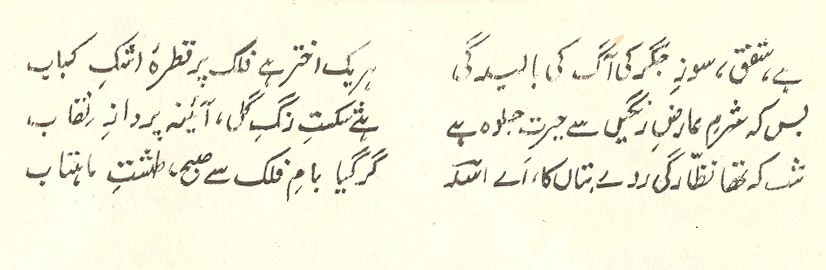 ہے، شفق، سوزِ جگر کی آگ کی بالیدگی ہر یک اختر ہے فلک پر قطرۂ اشکِ کباب
بس کہ شرمِ عارضِ رنگیں سے حیرت جلوہ ہے ہے شکستِ رنگِ گل، آئینہ پردازِ نقاب
شب کہ تھا نظّارگی روے بتاں کا، اَے اسدؔ گر گیا بامِ فلک سے صبح، طشتِ ماہتاب